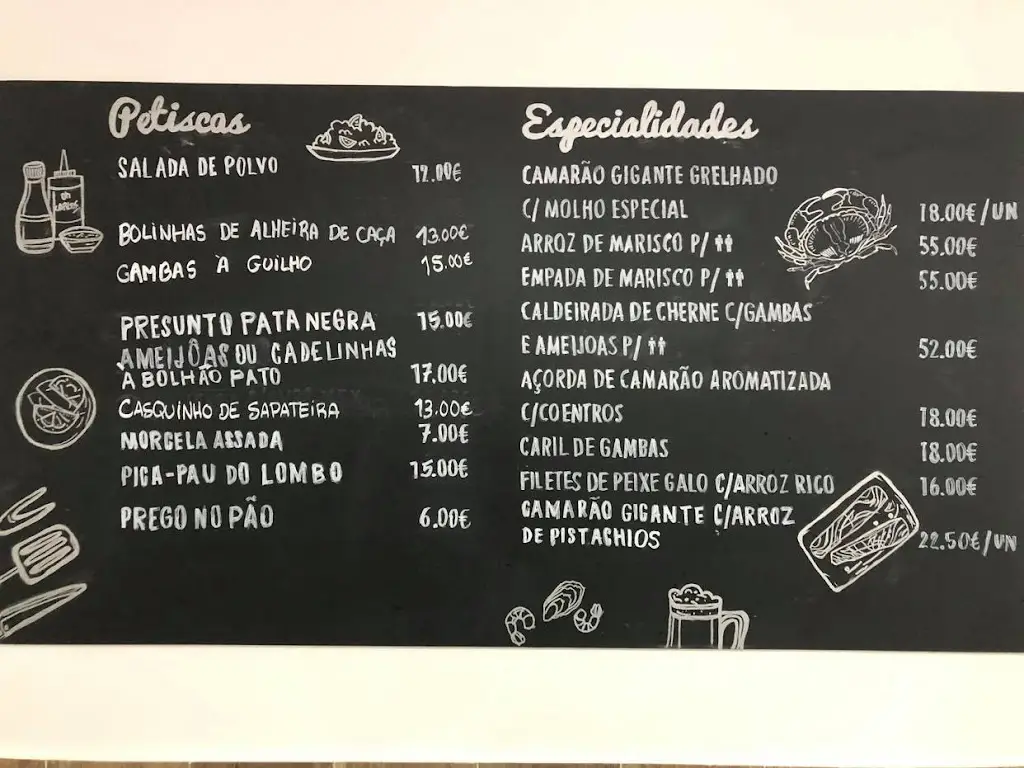 Petiscas
SALADA DE POLVO 12.00€
BOLINHAS DE ALHEIRA DE CAÇA 13.00€
GAMBAS À GUILHO 15.00€
PRESUNTO PATA NEGRA 15.00€
AMEIJÔAS OU CADELINHAS
À BOLHÃO PATO 17.00€
CASQUINHO DE SAPATEIRA 13.00€
MORCELA ASSADA 7.00€
PICA-PAU DO LOMBO 15.00€
PREGO NO PÃO 6.00€
Especialidades
CAMARÃO GIGANTE GRELHADO
C/ MOLHO ESPECIAL 18.00€/UN
ARROZ DE MARISCO P/ 55.00€
EMPADA DE MARISCO P/ 55.00€
CALDEIRADA DE CHERNE C/GAMBAS
E AMEIJOAS P/ 52.00€
AÇORDA DE CAMARÃO AROMATIZADA
C/COENTROS 18.00€
CARIL DE GAMBAS 18.00€
FILETES DE PEIXE GALO C/ARROZ RICO 16.00€
CAMARÃO GIGANTE C/ARROZ
DE PISTACHIOS 22.50€/UN